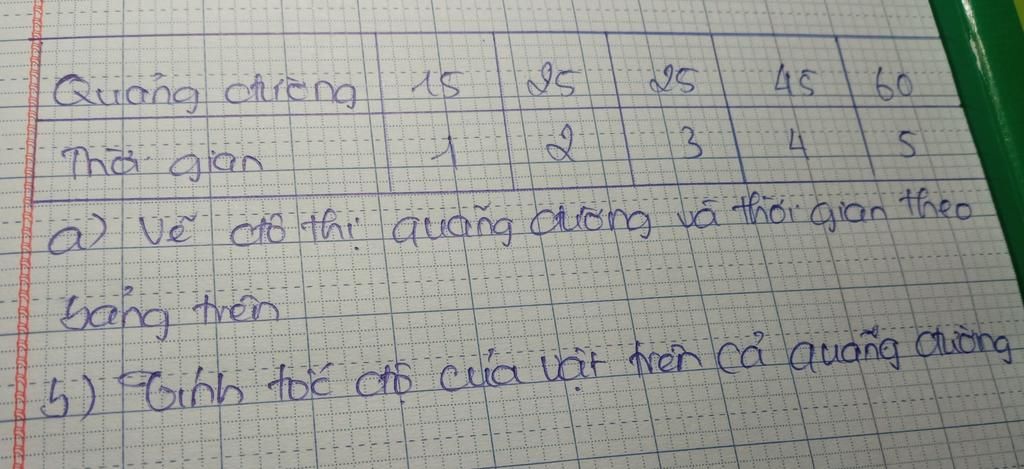 Quãng đường 15 25 25 45 60
Thời gian 1 2 3 4 5
a) Vẽ đồ thị quãng đường và thời gian theo
bảng trên
b) Tính tốc độ của vật trên cả quãng đường